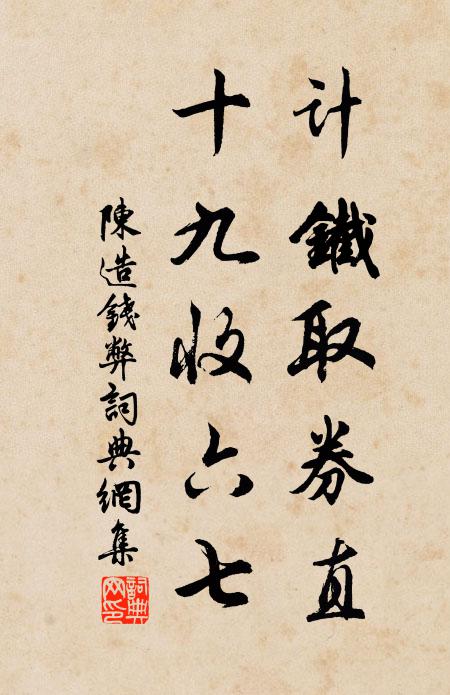 计鐵取券直
十九收六七
陳造錢弊詞典網集
詞典网印